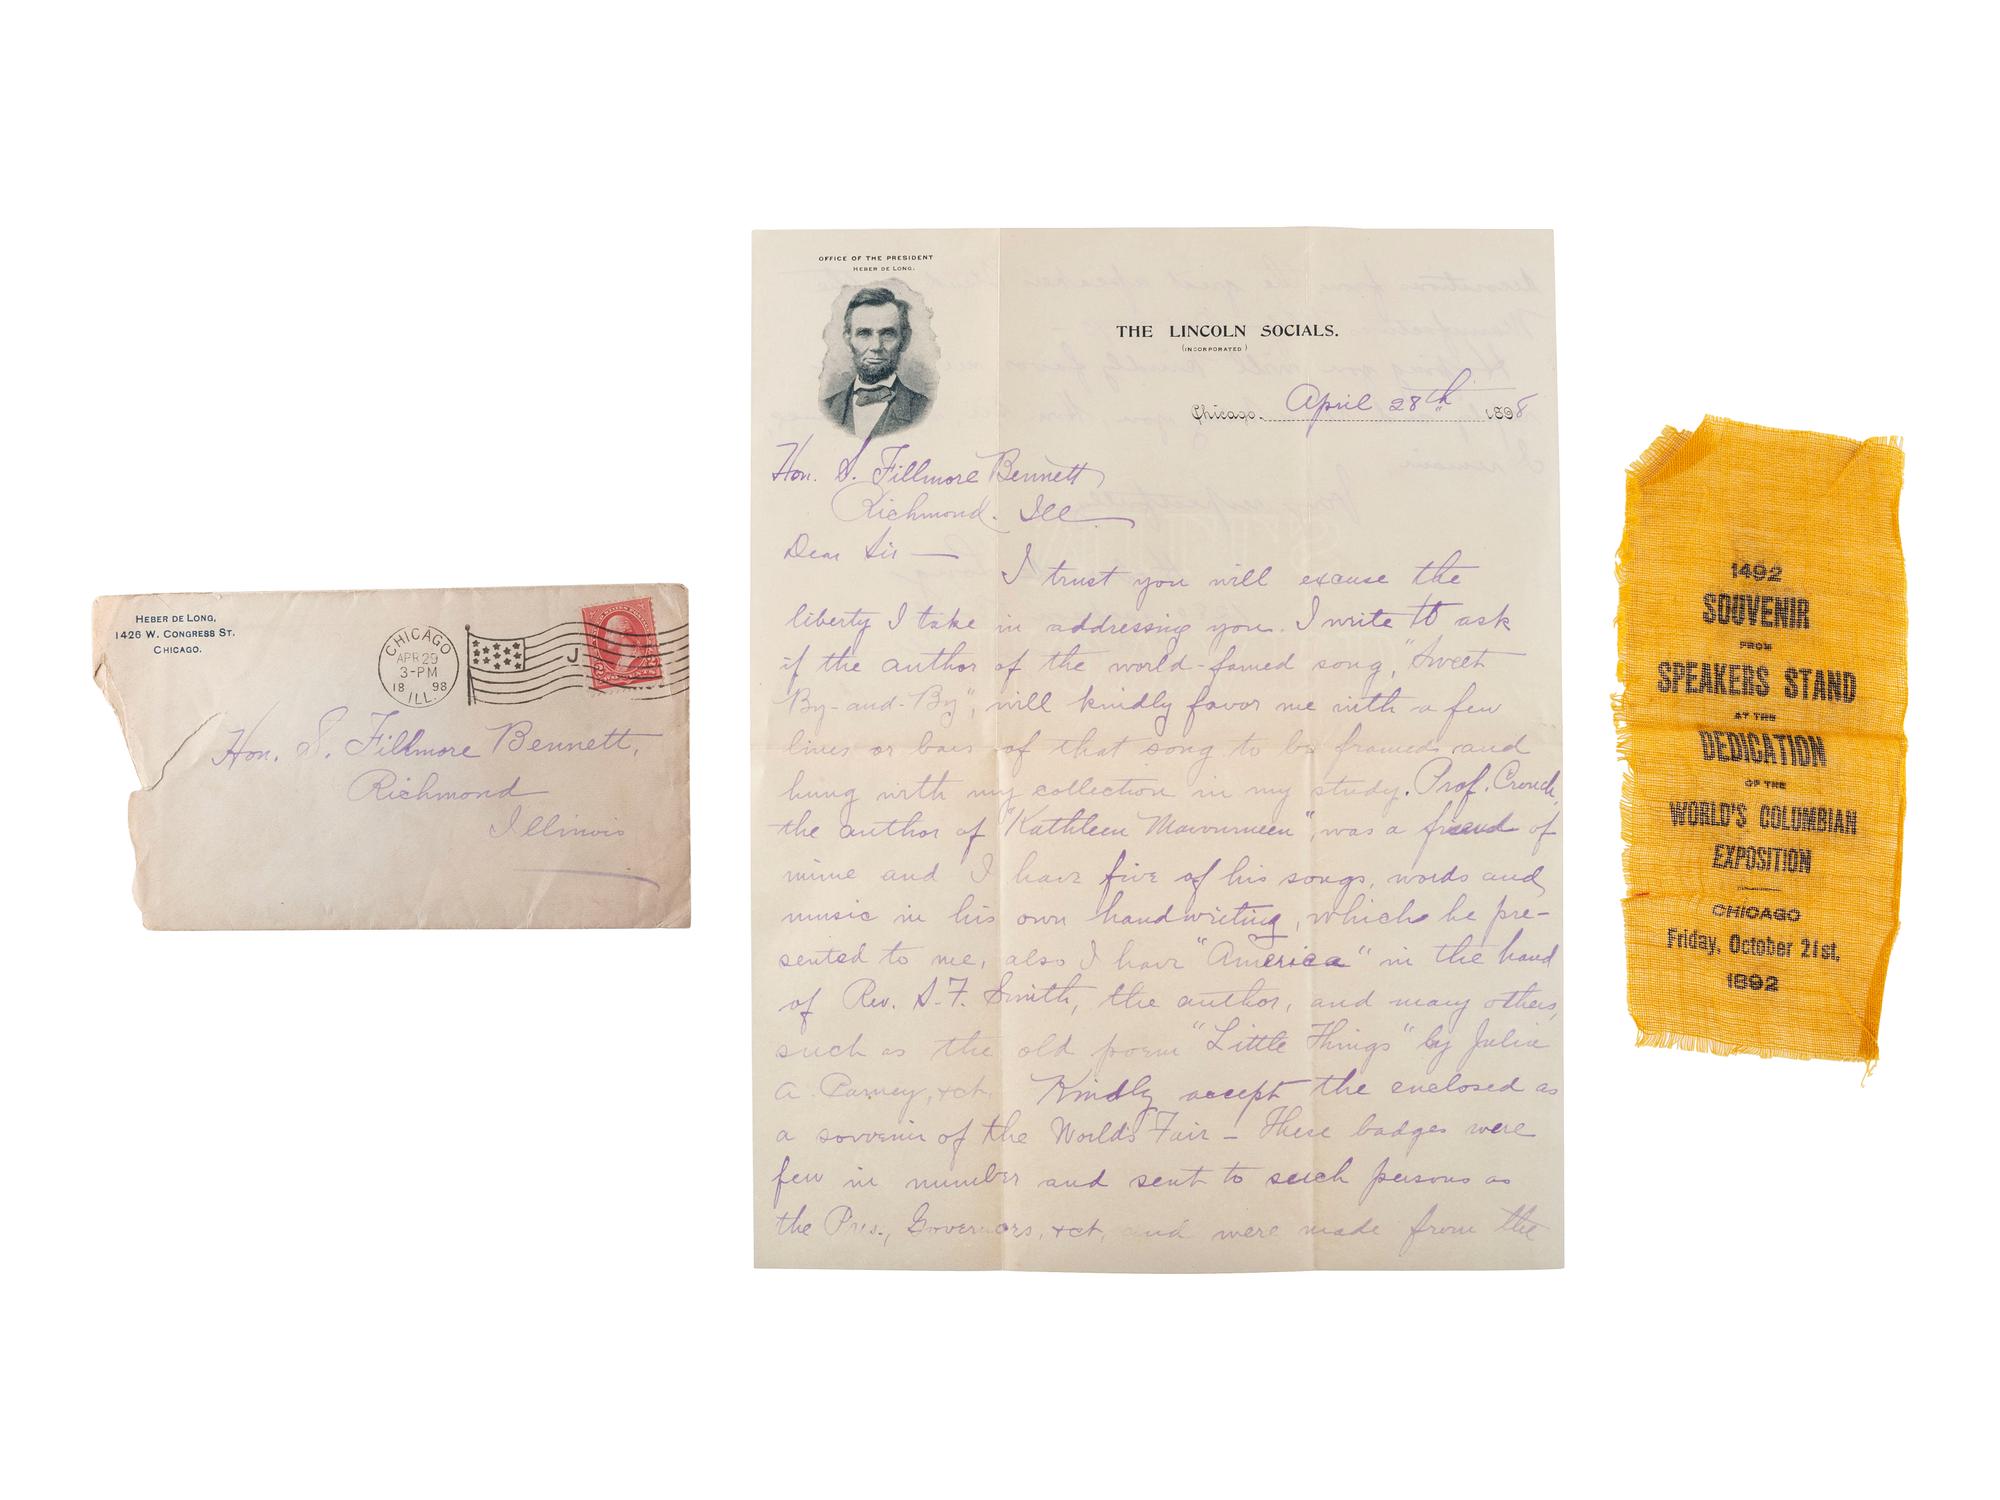 HEBER DE LONG,
1426 W. CONGRESS ST.
CHICAGO.
CHICAGO
APR 29
3-PM
18 98
ILL.
J
Hon. S. Fillmore Bennett,
Richmond
Illinois
OFFICE OF THE PRESIDENT
HEBER DE LONG.
THE LINCOLN SOCIALS.
(INCORPORATED)
Chicago. April 28th 1898
Hon. S. Fillmore Bennett
Richmond. Ill.
Dear Sir —
I trust you will excuse the
liberty I take in addressing you. I write to ask
if the author of the world-famed song, "Sweet
By-and-By", will kindly favor me with a few
lines or bars of that song to be framed and
hung with my collection in my study. Prof. Crouch,
the author of "Kathleen Mavourneen", was a friend of
mine and I have five of his songs, words and
music in his own handwriting, which he pre-
sented to me, also I have "America" in the hand
of Rev. S. F. Smith, the author, and many others,
such as the old poem "Little Things" by Julia
A. Carney, &ct. Kindly accept the enclosed as
a sovvenir of the World's Fair – These badges were
few in number and sent to such persons as
the Pres., Governors, &ct, and were made from the
1492
SOUVENIR
FROM
SPEAKERS STAND
AT THE
DEDICATION
OF THE
WORLD'S COLUMBIAN
EXPOSITION
CHICAGO
Friday, October 21st,
1892